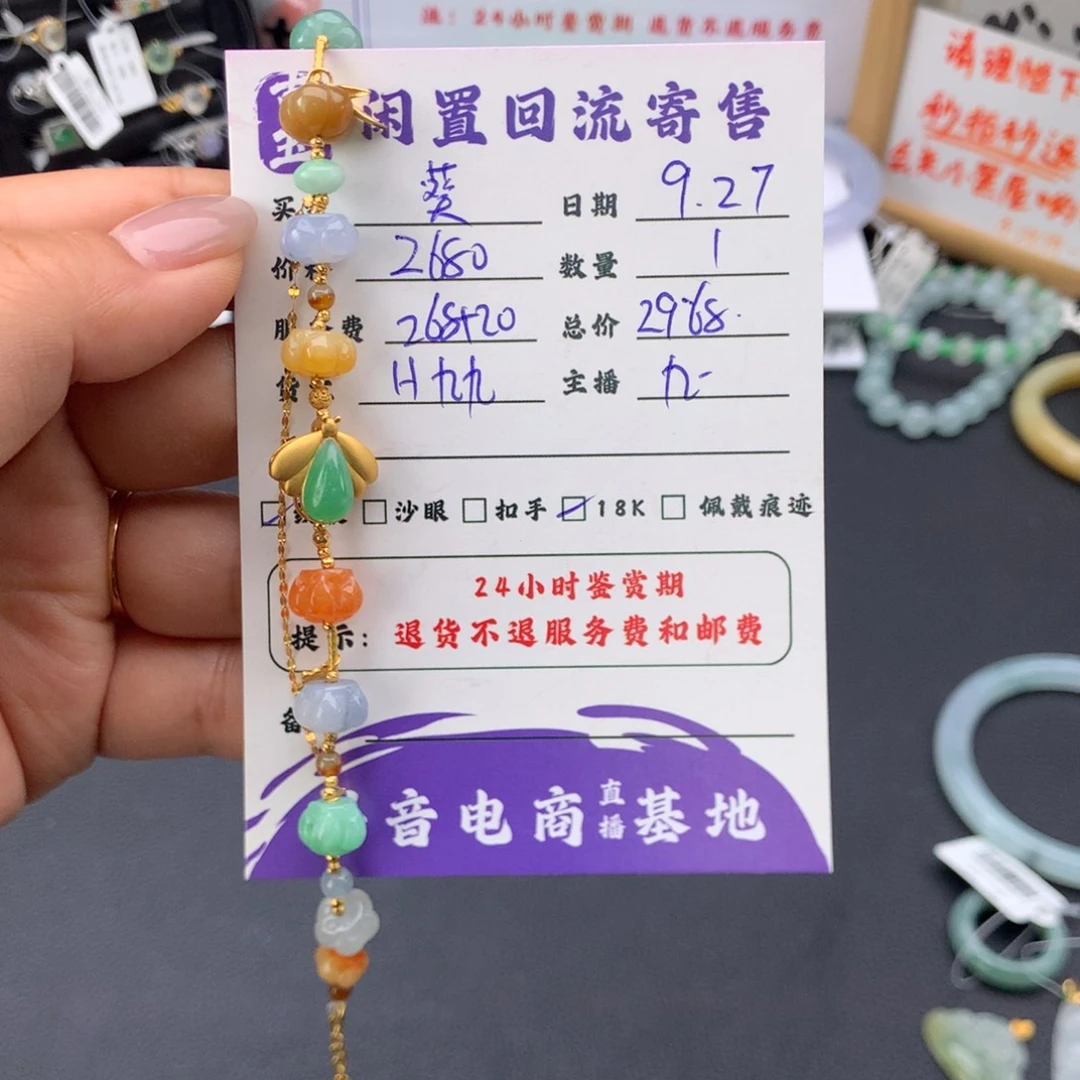 注：24小时鉴赏期 退货不退服务费
闲置回流寄售
请理性下
秒拍秒退
买 葵 日期 9.27
价 2680 数量 1
费 268+20 总价 2968.
货 H九九 主播 九一
沙眼 扣手 18K 佩戴痕迹
24小时鉴赏期
提示：退货不退服务费和邮费
备
音电商直播基地